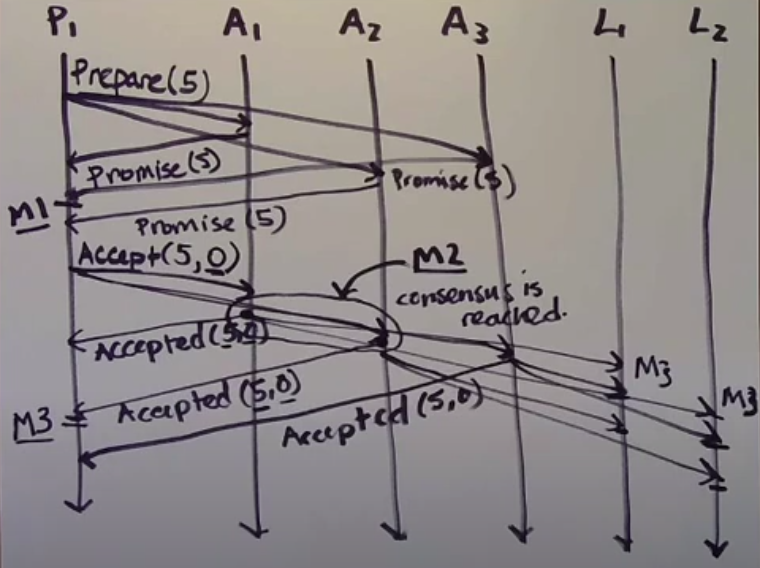 P1 A1 A2 A3 L1 L2
Prepare(5)
Promise(5)
Promise(5)
M1
Promise (5)
Accept(5,0)
M2
consensus is
reached.
Accepted(5,0)
M3
M3
Accepted (5,0)
M3
Accepted (5,0)